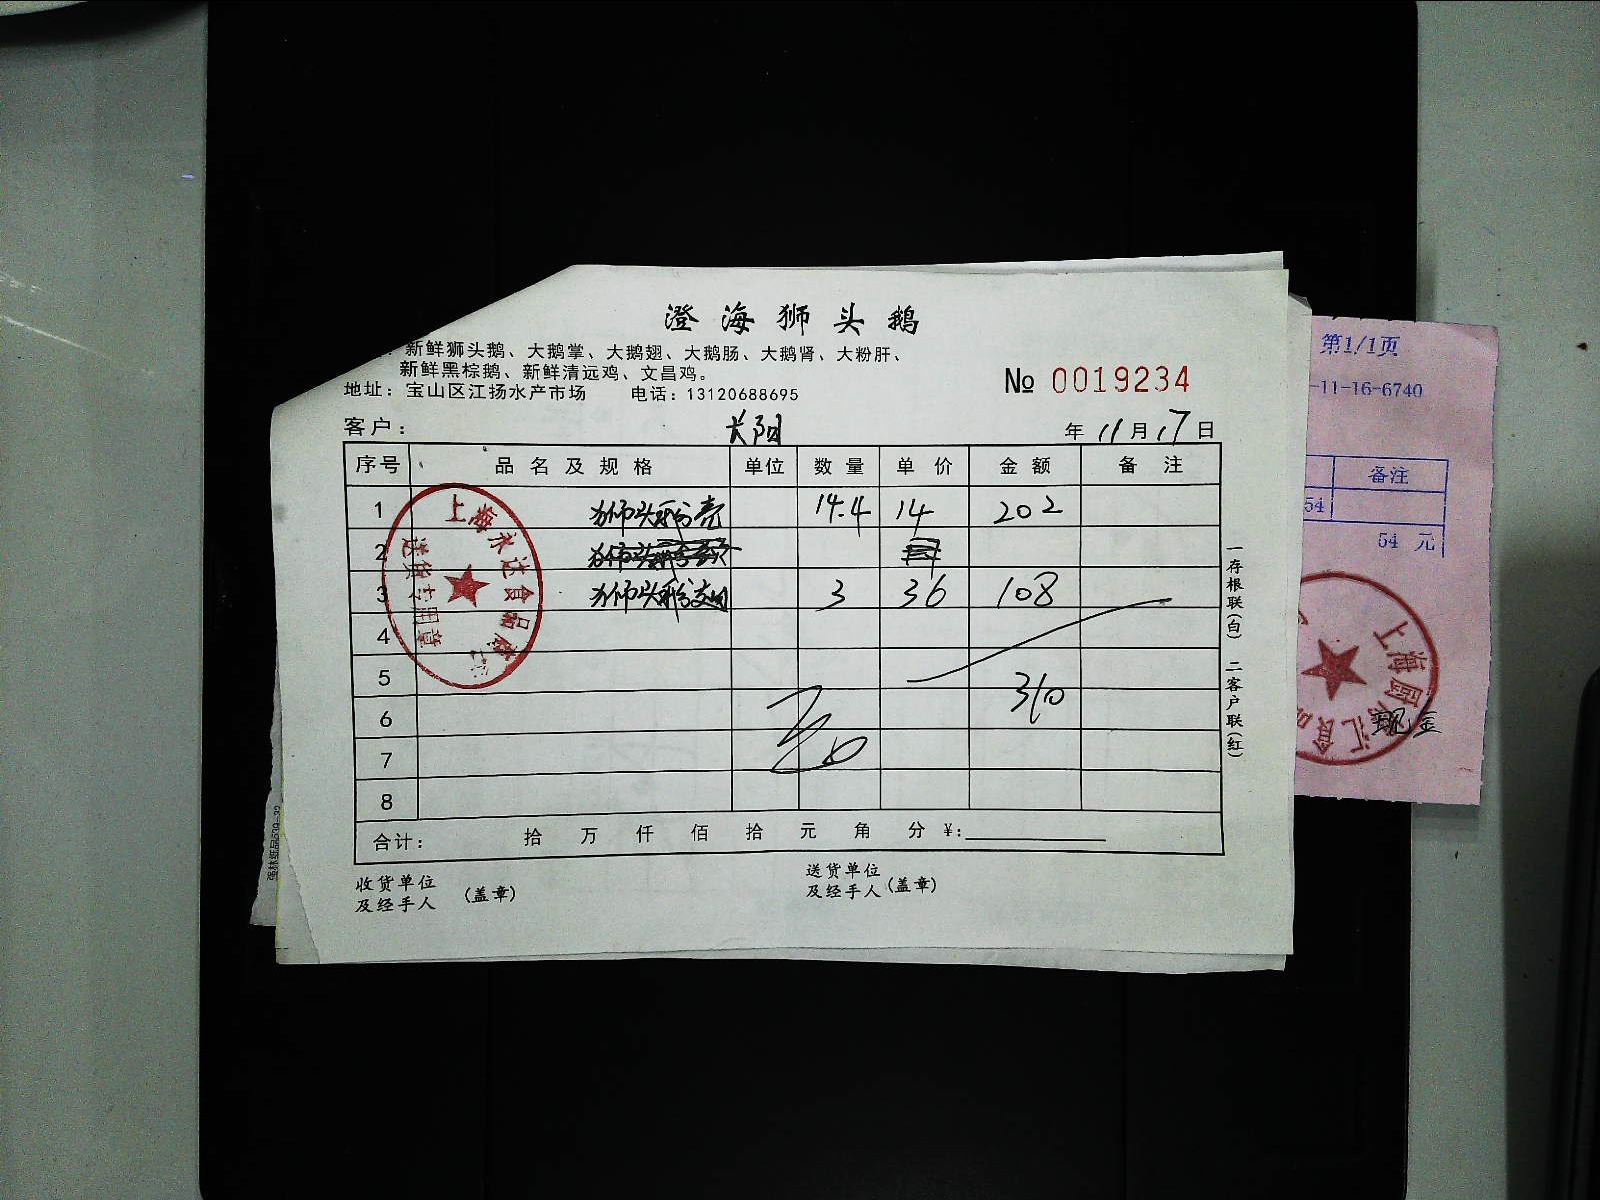 澄海狮头鹅
：新鲜狮头鹅、大鹅掌、大鹅翅、大鹅肠、大鹅肾、大粉肝、
新鲜黑棕鹅、新鲜清远鸡、文昌鸡。
地址：宝山区江扬水产市场 电话：13120688695
№ 0019234
客户： 长阳 年 11 月 17 日
序号 品名及规格 单位 数量 单价 金额 备注
1 狮头鹅壳 14.4 14 202
2 狮头鹅
3 狮头鹅 3 36 108
4
5
6 310
7
8
合计： 拾 万 仟 佰 拾 元 角 分 ¥:
收货单位
及经手人 (盖章)
送货单位
及经手人 (盖章)
一存根联(白) 二客户联(红)
上海永达食品
送货专用章
第1/1页
-11-16-6740
备注
54
54 元
上海
汇食
现金